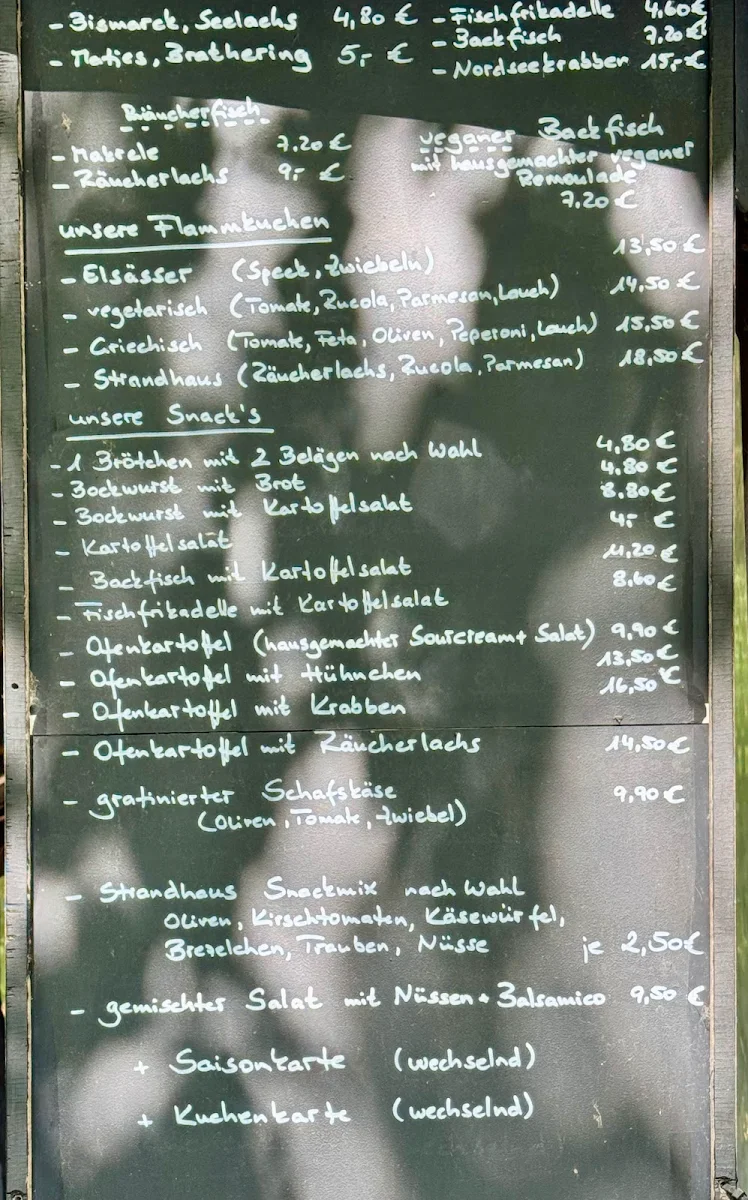 - Bismarck, Seelachs 4,80 € - Fischfrikadelle 4,60€
- Backfisch 7,20€
- Matjes, Brathering 5,- € - Nordseekrabben 15,-€
Räucherfisch
- Makrele 7.20 €
- Räucherlachs 9,- €
veganer Backfisch
mit hausgemachter veganer
Remoulade
7.20 €
unsere Flammkuchen
- Elsässer (Speck, Zwiebeln) 13,50 €
- vegetarisch (Tomate, Rucola, Parmesan, Lauch) 14,50 €
- Griechisch (Tomate, Feta, Oliven, Peperoni, Lauch) 15,50 €
- Strandhaus (Räucherlachs, Rucola, Parmesan) 18,50€
unsere Snack's
- 1 Brötchen mit 2 Belägen nach Wahl 4,80 €
- Bockwurst mit Brot 4,80 €
- Bockwurst mit Kartoffelsalat 8.80€
- Kartoffelsalat 4,- €
- Backfisch mit Kartoffelsalat 11,20 €
- Fischfrikadelle mit Kartoffelsalat 8,60€
- Ofenkartoffel (hausgemachter Sourcream + Salat) 9,90 €
- Ofenkartoffel mit Hühnchen 13,50€
- Ofenkartoffel mit Krabben 16,50€
- Ofenkartoffel mit Räucherlachs 14,50€
- gratinierter Schafskäse 9,90 €
(Oliven, Tomate, Zwiebel)
- Strandhaus Snackmix nach Wahl
Oliven, Kirschtomaten, Käsewürfel,
Brezelchen, Trauben, Nüsse je 2,50€
- gemischter Salat mit Nüssen + Balsamico 9,50 €
+ Saisonkarte (wechselnd)
+ Kuchenkarte (wechselnd)